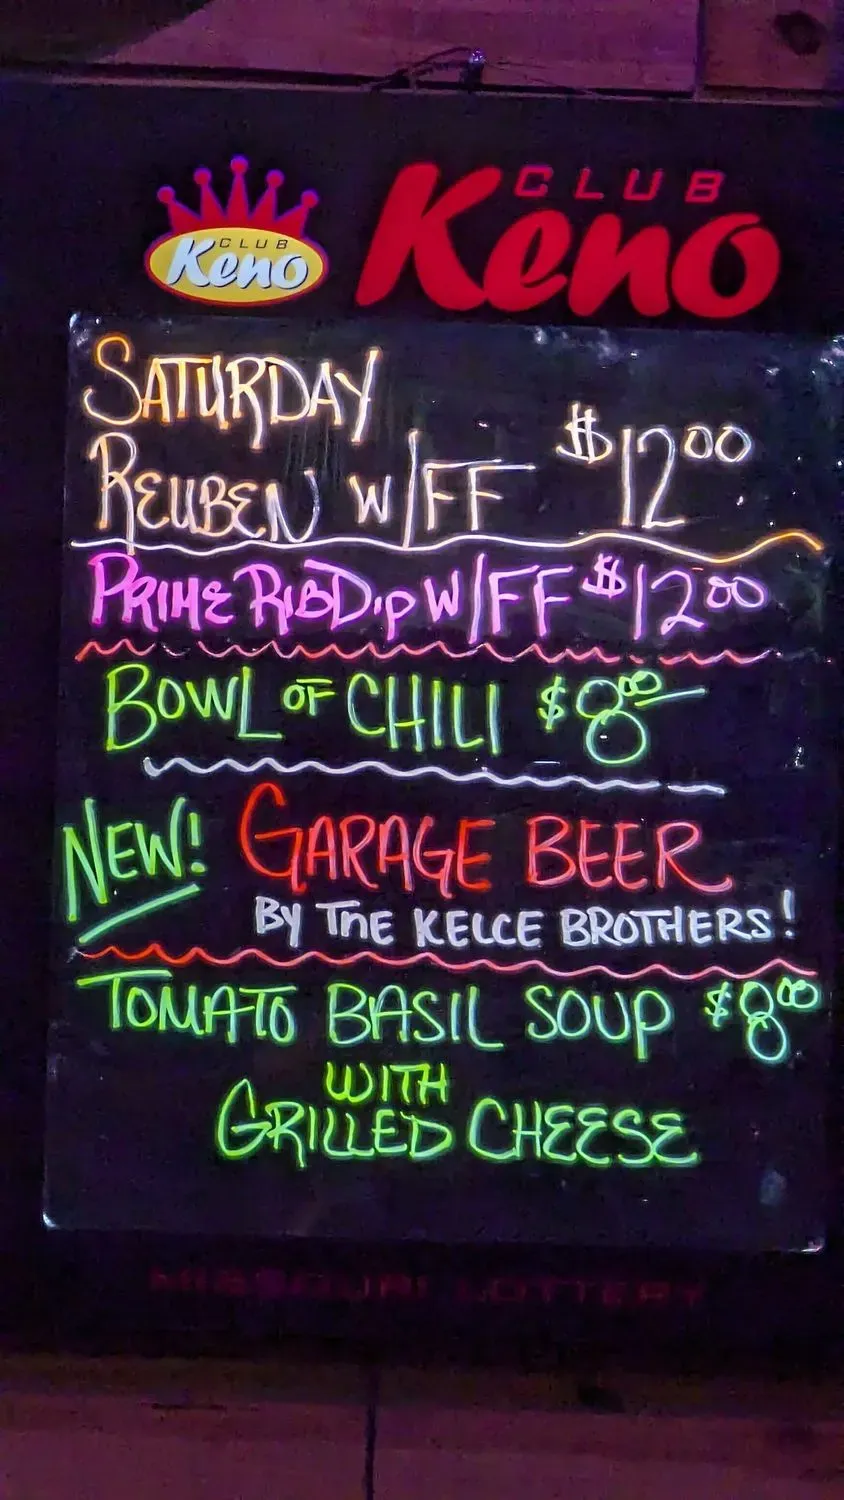 CLUB
Keno
CLUB
Keno
SATURDAY
REUBEN W/FF $12.00
PRIME RIB DIP W/FF $12.00
BOWL OF CHILI $8.00
NEW! GARAGE BEER
BY THE KELCE BROTHERS!
TOMATO BASIL SOUP $8.00
WITH
GRILLED CHEESE
MISSOURI LOTTERY